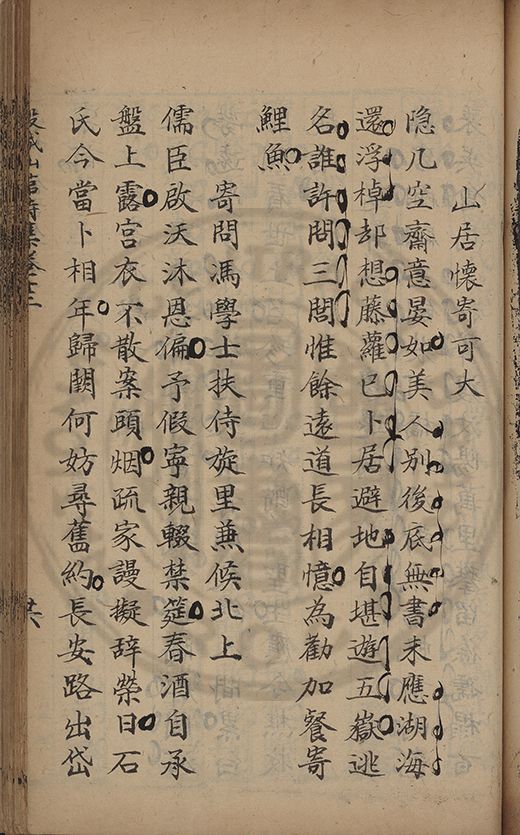 山居懷寄可大
隐几空齋意晏如美人別後底無書未應湖海
還浮棹却想藤蘿已卜居避地自堪遊五嶽逃
名誰許問三閭惟餘遠道長相憶為勸加餐寄
鯉魚
寄問馮學士扶侍旋里蕪候北上
儒臣啟沃沐恩偏予假寧親輟禁筵春酒自承
盤上露宮衣不散案頭烟疏家謾擬辭榮日石
氏今當卜相年歸闕何妨尋舊約長安路出岱